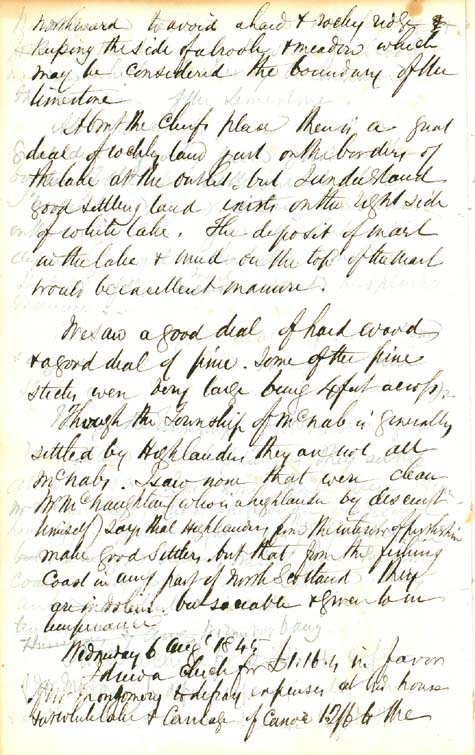 northward to avoid a hard & rocky ridge &
keeping the side of a brook & meadow which
may be considered the boundary of the
limestone
About the Chiefs place there is a great
deal of rocky land just on the borders of
the lake at the outlet, but I understand
good settling land exists on the right side
of white lake. The deposit of marl
in the lake & mud on the top of the marl
would be excellent manure.
We saw a good deal of hard wood
& a good deal of pine. Some of the pine
sticks were very large being 4 feet across.
Though the Township of McNab is generally
settled by Highlanders they are not all
McNabs. I saw none that were clean
Mr McNaughtan (who is a highlander by descent
himself) says that Highlanders from the interior of perthshire
make good settlers. but that from the fishing
Coast in any part of North Scotland they
are indolent. but sociable & given to in
temperance
Wednesday 6 Augt 1845
drew a check for £1.16.4 in favor
of Mr Montgomery to defray expenses at his house
white lake & Carriage of Canoe 12/6 to the